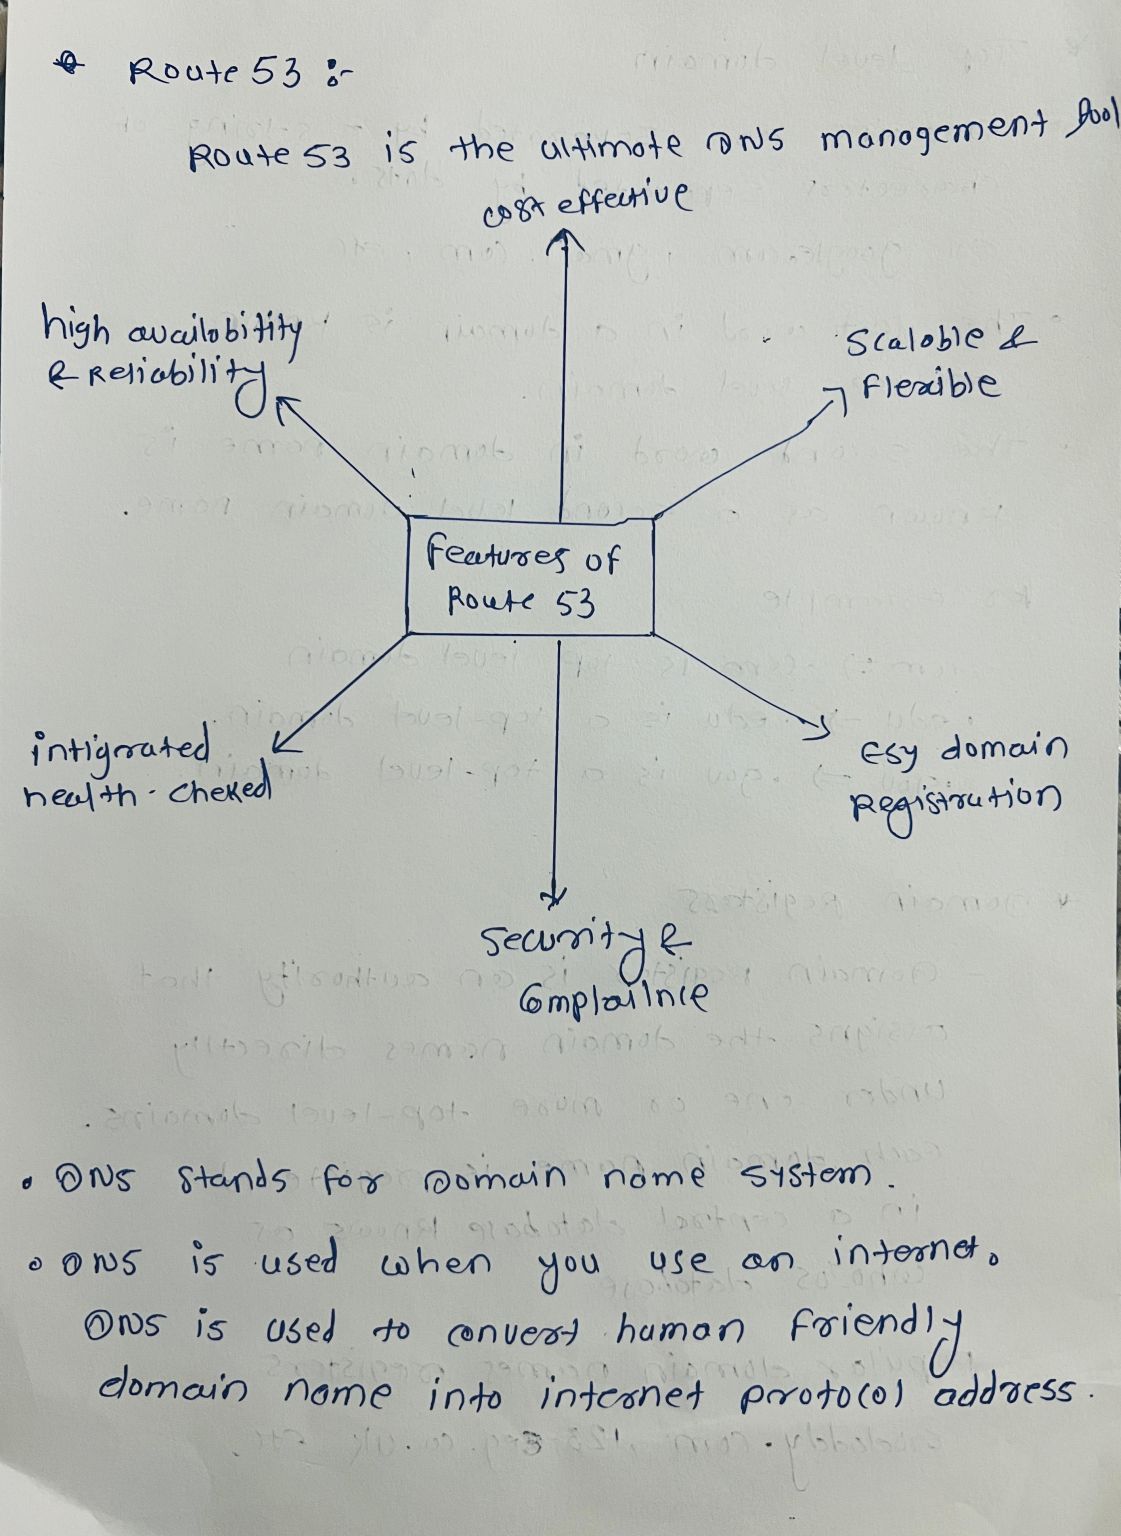 Route 53 :-
Route 53 is the ultimate DNS management Pool
cost effective
high availobitity
& Reliability
Scaloble &
Flexible
Features of
Route 53
intigrated
health-cheked
Esy domain
Registration
Security &
Complailnce
• DNS Stands for Domain name System.
• DNS is used when you use an internet.
DNS is used to convert human friendly
domain name into internet protocol address.